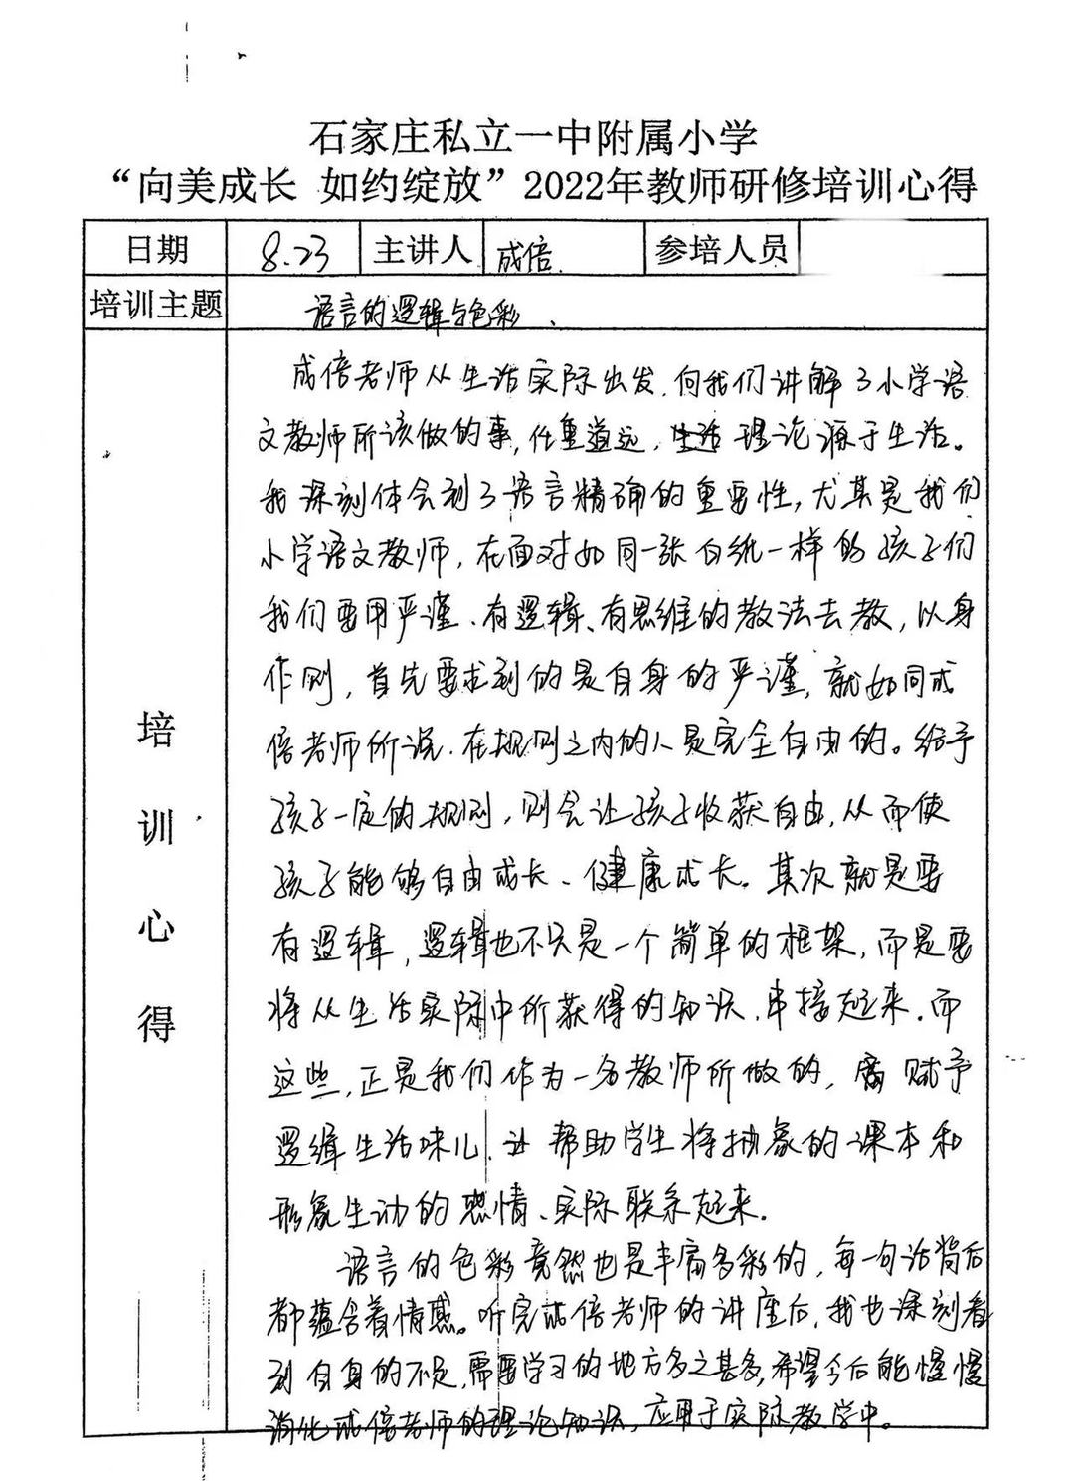 石家庄私立一中附属小学
“向美成长 如约绽放”2022年教师研修培训心得
日期 8.23 主讲人 成倍 参培人员
培训主题 语言的逻辑与色彩、
培训心得
成倍老师从生活实际出发,向我们讲解了小学语
文教师所该做的事,任重道远,理论源于生活。
我深刻体会到了语言精确的重要性,尤其是我们
小学语文教师,在面对如同一张白纸一样的孩子们
我们要用严谨、有逻辑、有思维的教法去教,以身
作则,首先要求到的是自身的严谨,就如同成
倍老师所说,在规则之内的人是完全自由的。给予
孩子一定的规则,则会让孩子收获自由,从而使
孩子能够自由成长、健康成长。其次就是要
有逻辑,逻辑也不只是一个简单的框架,而是要
将从生活实际中所获得的知识,串接起来.而
这些,正是我们作为一名教师所做的,赋予
逻辑生活味儿,帮助学生将抽象的课本和
形象生动的感情、实际联系起来.
语言的色彩竟然也是丰富多彩的,每一句话背后
都蕴含着情感。听完成倍老师的讲座后,我也深刻看
到自身的不足,需要学习的地方多之甚多,希望今后能慢慢
消化成倍老师的理论知识,应用于实际教学中。